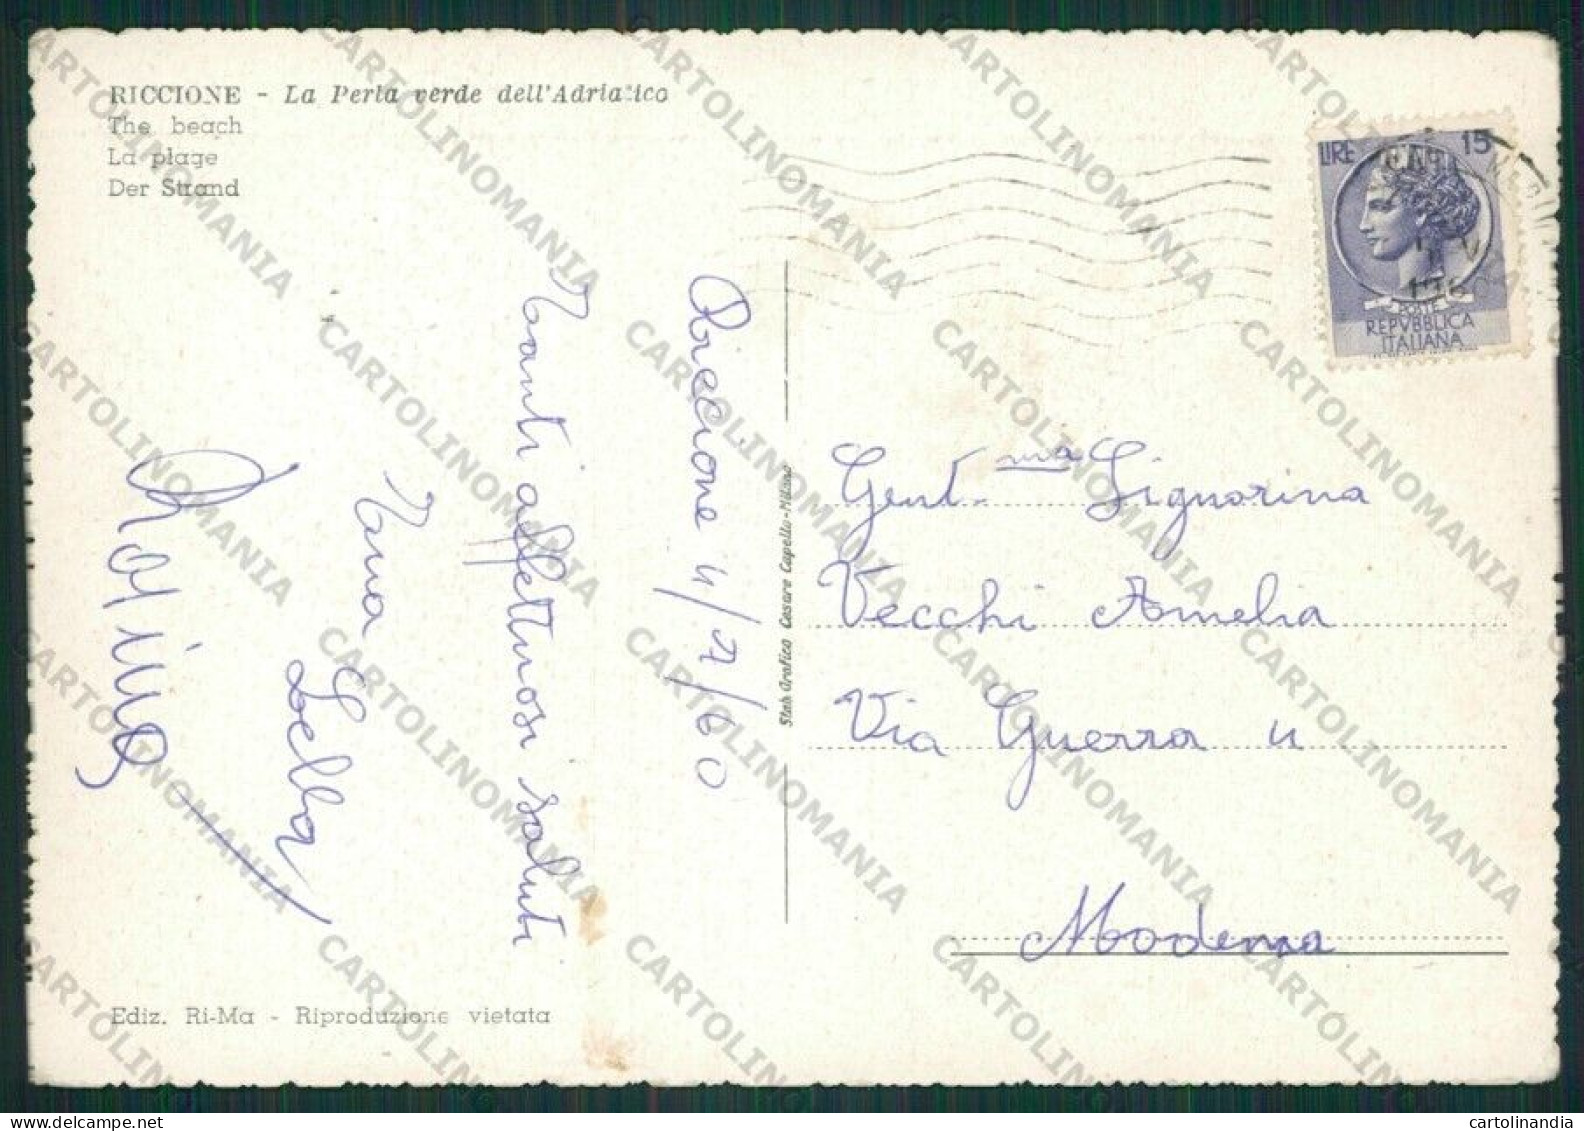 RICCIONE - La Perla verde dell'Adriatico
The beach
La plage
Der Strand
LIRE 15
POSTE
REPVBBLICA
ITALIANA
Riccione 4/7/60
Tanti affettuosi saluti
Lella
Stab. Grafico Cesare Capello - Milano
Gent.ma Signorina
Vecchi Amelia
Via Guerra 4
Modena
Ediz. Ri-Ma - Riproduzione vietata
CARTOLINOMANIA
cartolinandia